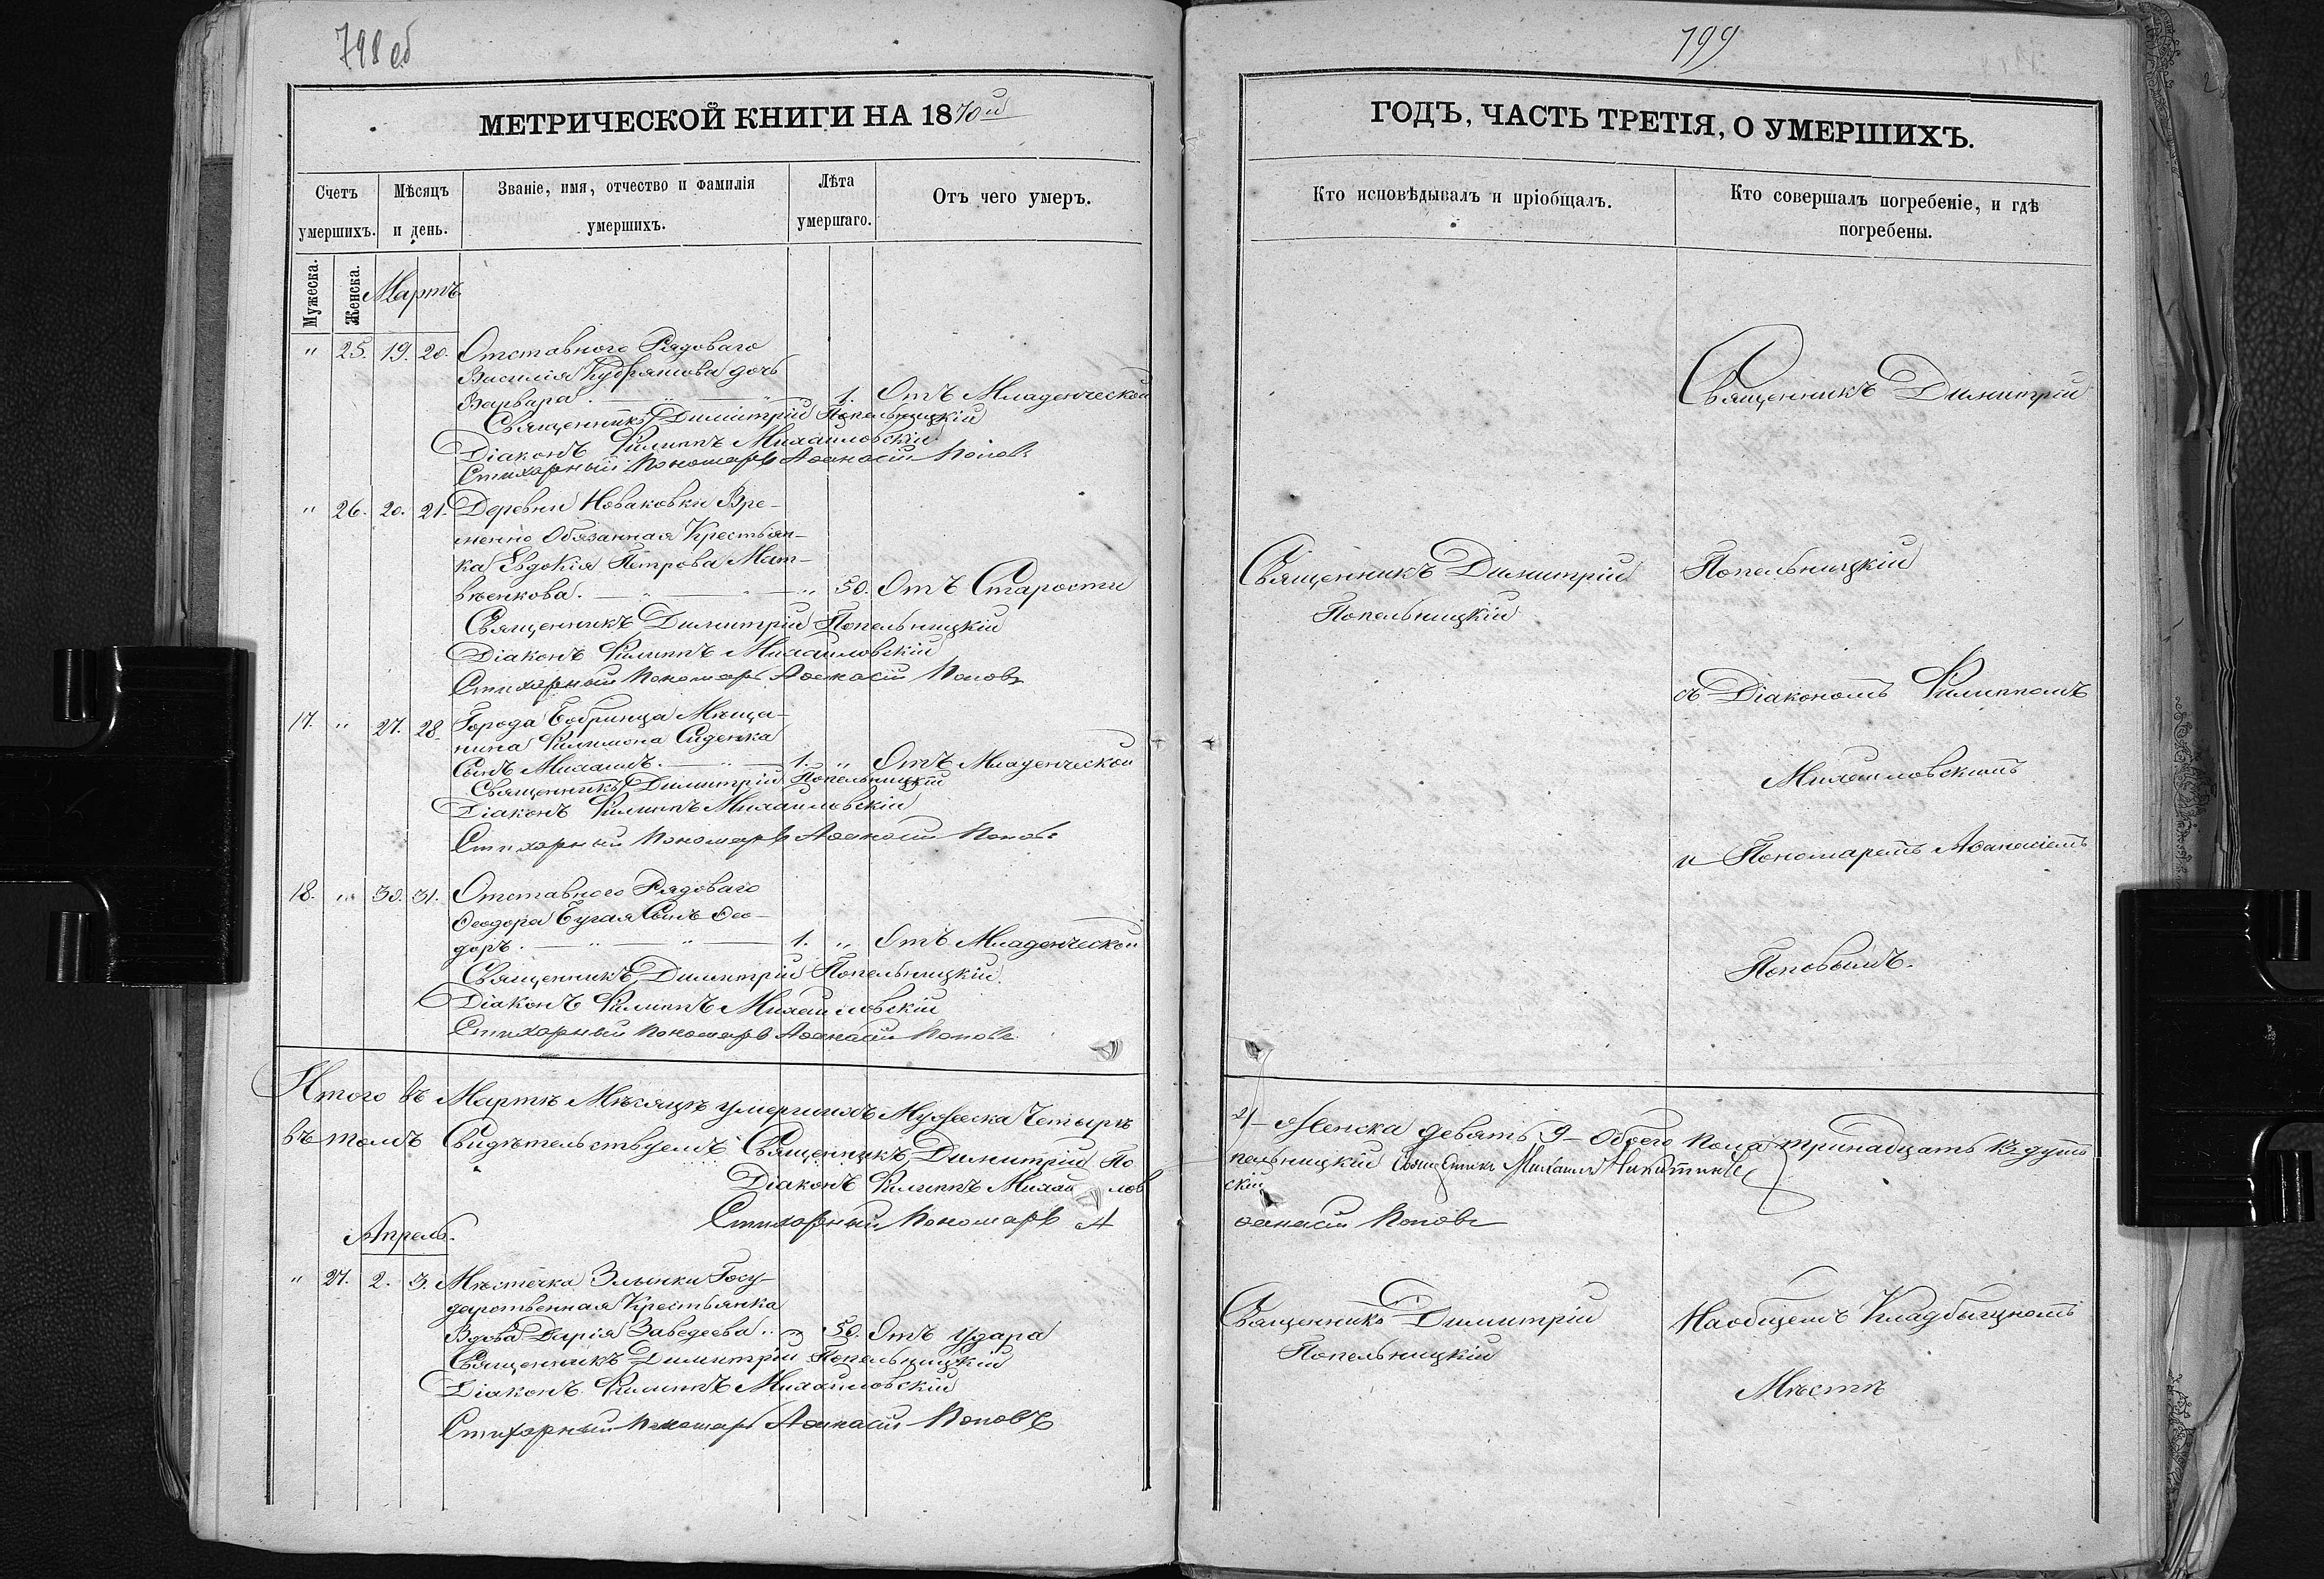 798 об
МЕТРИЧЕСКОЙ КНИГИ НА 1870й
Счетъ умершихъ.
Мѣсяцъ и день.
Званіе, имя, отчество и фамилія умершихъ.
Лѣта умершаго.
Отъ чего умеръ.
Мужеска.
Женска.
Мартъ.
" 25. 19. 20. Отставного Рядоваго
Василія Кудряшова дочь
Варвара. 1. Отъ Младенческой
Священникъ Димитрій Попельницкій
Діаконъ Филиппъ Михаиловскій
Стихарный Пономарь Аѳанасій Поповъ
" 26. 20. 21. Деревни Новаковки Вре-
менно Обязанная Крестьян-
ка Евдокія Петрова Мат-
вѣенкова. " 50. Отъ Старости
Священникъ Димитрій Попельницкій
Діаконъ Филиппъ Михаиловскій
Стихарный Пономарь Аѳанасій Поповъ
17. " 27. 28. Города Бобринца Мѣща-
нина Филимона Сиденка
Сынъ Михаилъ. 1. " Отъ Младенческой
Священникъ Димитрій Попельницкій
Діаконъ Филиппъ Михаиловскій
Стихарный Пономарь Аѳанасій Поповъ
18. " 30. 31. Отставного Рядоваго
Ѳеодора Бугая Сынъ Ѳео-
доръ. 1. " Отъ Младенческой
Священникъ Димитрій Попельницкій
Діаконъ Филиппъ Михаиловскій
Стихарный Пономарь Аѳанасій Поповъ
Итого въ Мартѣ Мѣсяцѣ умершихъ Мужеска Четыре
въ томъ Свидѣтельствуемъ Священникъ Димитрій По
Діаконъ Филиппъ Михаи лов
Стихарный Пономарь А
Апрель.
" 27. 2. 3. Мѣстечка Злынки Госу-
дарственная Крестьянка
Вдова Дарія Заведеева " 50. Отъ удара
Священникъ Димитрій Попельницкій
Діаконъ Филиппъ Михаиловскій
Стихарный Пономарь Аѳанасій Поповъ
799
ГОДЪ, ЧАСТЬ ТРЕТІЯ, О УМЕРШИХЪ.
Кто исповѣдывалъ и пріобщалъ.
Кто совершалъ погребеніе, и гдѣ
погребены.
Священникъ Димитрій
Священникъ Димитрій
Попельницкій
Попельницкій
съ Діакономъ Филиппомъ
Михаиловскимъ
и Пономаремъ Аѳанасіемъ
Поповымъ.
4- Женска девять 9- Обоего пола тринадцать 13 душъ
пельницкій Священникъ Михаилъ Никитинъ
скій
ѳанасій Поповъ
Священникъ Димитрій
Попельницкій
На общемъ Кладбищномъ
Мѣстѣ